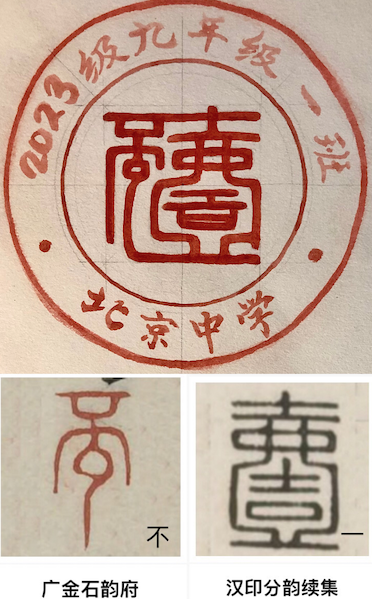 2023级九年级一班
北京中学
不
一
广金石韵府
汉印分韵续集